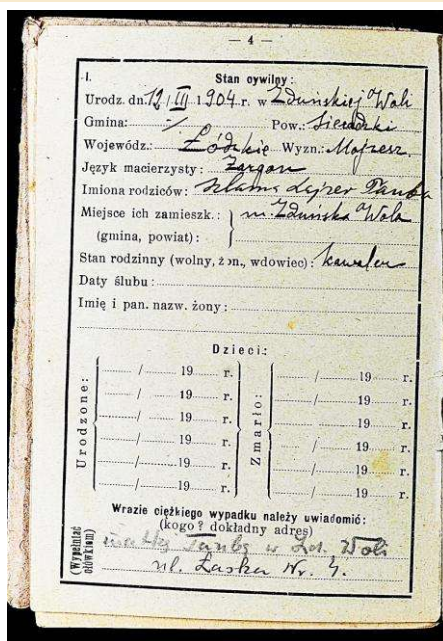 — 4 —
I. Stan cywilny:
Urodz. dn. 12 / III 1904 r. w Zduńskiej Woli
Gmina: -/- Pow.: Sieradzki
Wojewódz.: Łódzkie Wyzn.: Mojżesz.
Język macierzysty: Żargon
Imiona rodziców: Szlama Lejzer Tauba
Miejsce ich zamieszk.: } m. Zduńska Wola
(gmina, powiat):
Stan rodzinny (wolny, żon., wdowiec): kawaler
Daty ślubu:
Imię i pan. nazw. żony:
Dzieci:
Urodzone:
/ 19 r.
/ 19 r.
/ 19 r.
/ 19 r.
/ 19 r.
/ 19 r.
Zmarło:
/ 19 r.
/ 19 r.
/ 19 r.
/ 19 r.
/ 19 r.
/ 19 r.
Wrazie ciężkiego wypadku należy uwiadomić:
(kogo? dokładny adres)
(Wypełniać ołówkiem)
matkę Taubę w Zd. Woli
ul. Łaska Nr.